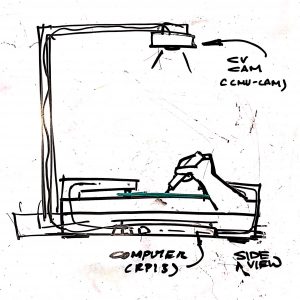 CV
CAM
(CMU-CAM)
COMPUTER
(RPI5)
SIDE
VIEW